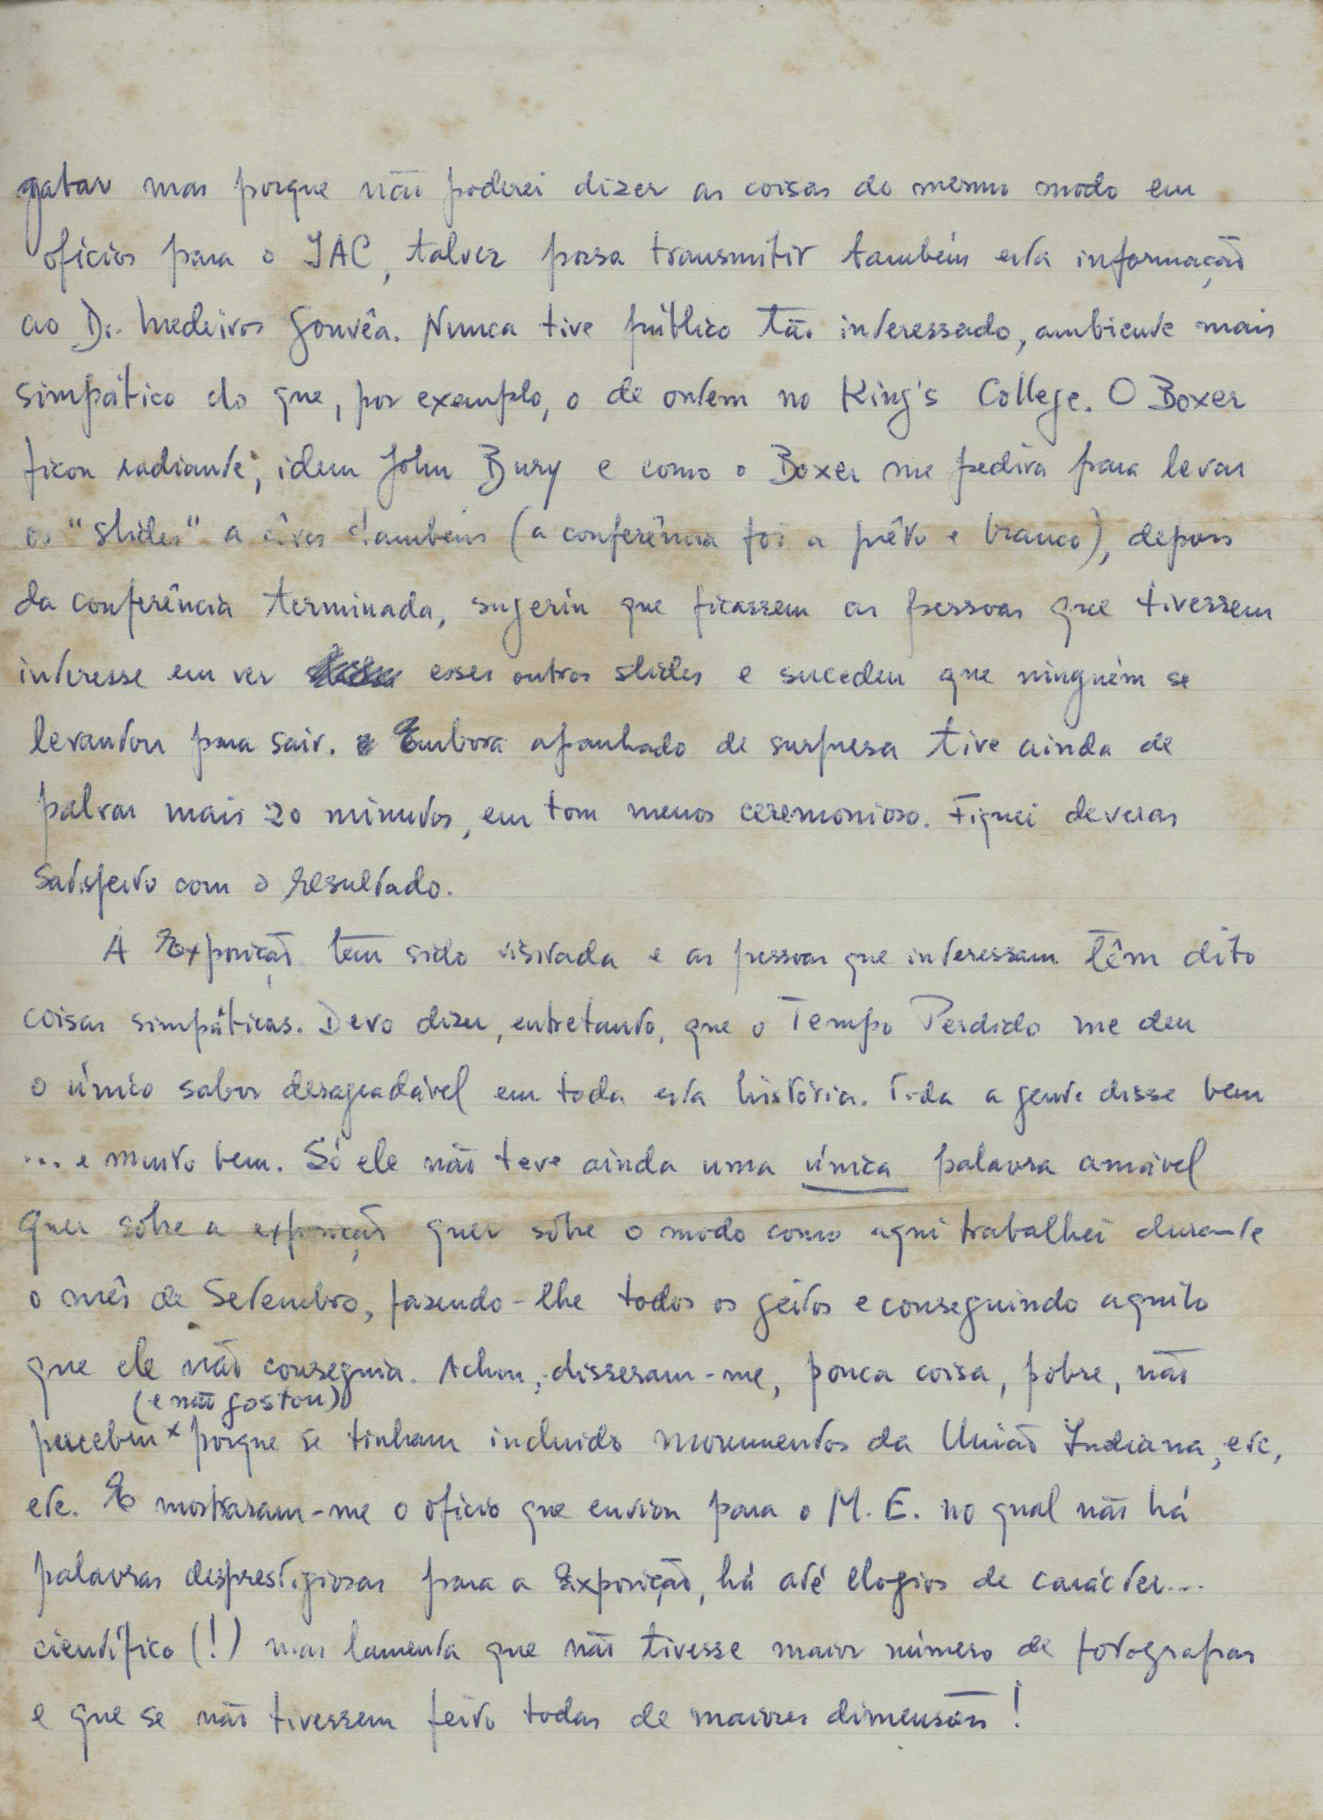 gabar mas porque não poderei dizer as coisas do mesmo modo em
ofícios para o IAC, talvez possa transmitir também esta informação
ao Dr. Medeiros Gouvêa. Nunca tive público tão interessado, ambiente mais
simpático do que, por exemplo, o de ontem no King's College. O Boxer
ficou radiante, idem John Bury e como o Boxer me pedira para levar
os "slides" a côres também (a conferência foi a prêto e branco), depois
da conferência terminada, sugeriu que ficassem as pessoas que tivessem
interesse em ver esses outros slides e sucedeu que ninguém se
levantou para sair. Embora apanhado de surpresa tive ainda de
palrar mais 20 minutos, em tom menos ceremonioso. Fiquei deveras
satisfeito com o resultado.
A Exposição tem sido visitada e as pessoas que interessam têm dito
coisas simpáticas. Devo dizer, entretanto, que o Tempo Perdido me deu
o único sabor desagradável em toda esta história. Toda a gente disse bem
... e muito bem. Só ele não teve ainda uma única palavra amável
quer sôbre a exposição quer sôbre o modo como aqui trabalhei durante
o mês de Setembro, fazendo-lhe todos os geitos e conseguindo aquilo
que ele não conseguia. Achou, disseram-me, pouca coisa, pobre, não
(e não gostou)
percebeu x porque se tinham incluido monumentos da União Indiana, etc,
etc. E mostraram-me o ofício que enviou para o M. E. no qual não há
palavras desprestigiosas para a Exposição, há até elogios de carácter...
científico (!) mas lamenta que não tivesse maior número de fotografias
e que se não tivessem feito todas de maiores dimensões!